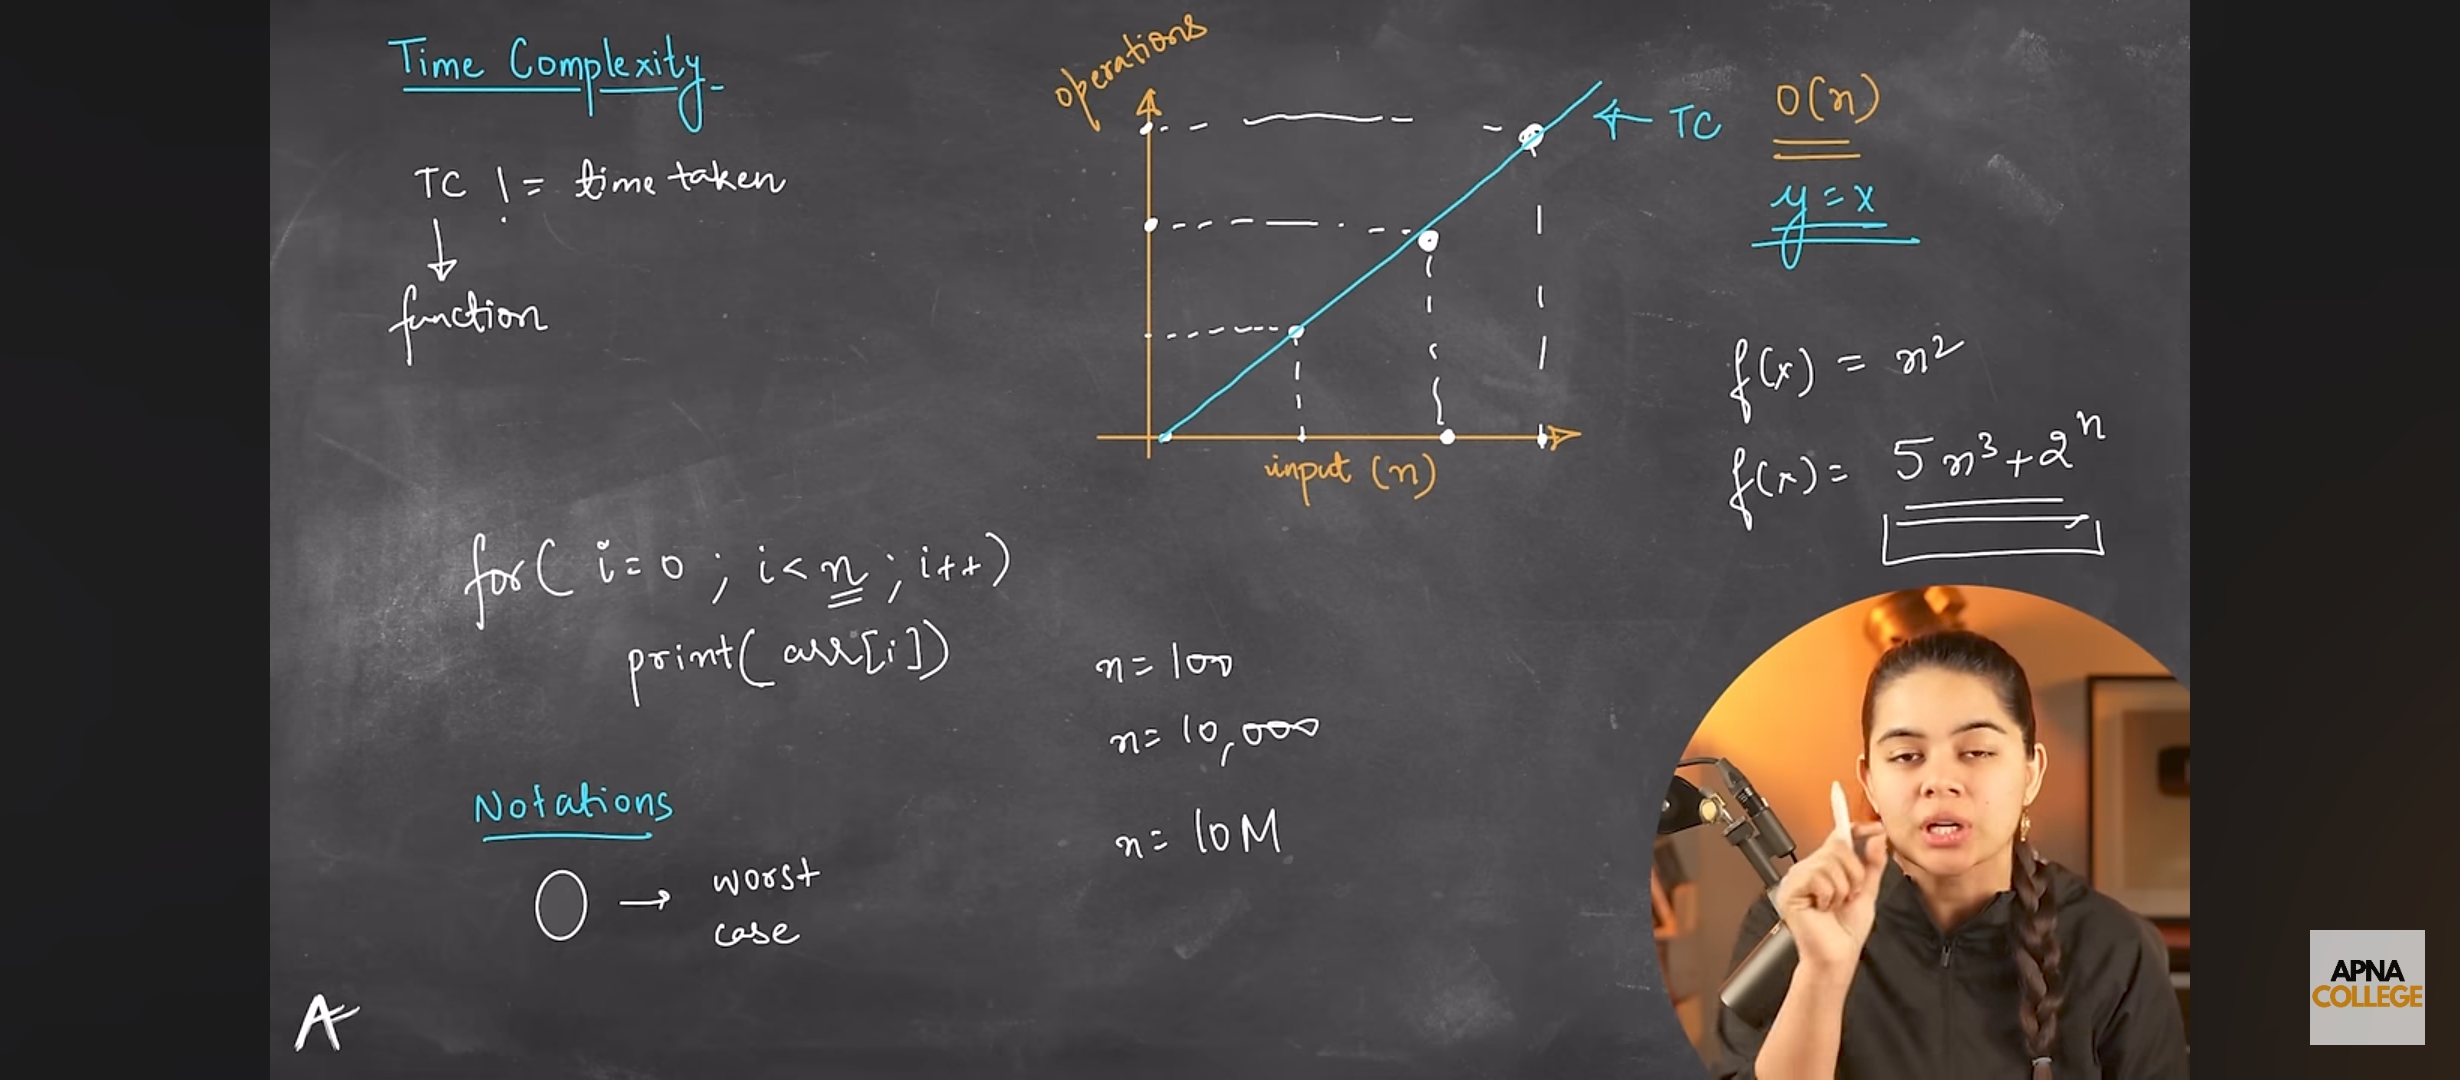 Time Complexity
TC != time taken
↓
function
operations
input (n)
← TC
O(n)
y = x
f(x) = n²
f(x) = 5n³+2ⁿ
for( i=0 ; i<n ; i++)
print( arr[i])
n = 100
n = 10,000
n = 10M
Notations
O → worst
case
A
APNA
COLLEGE